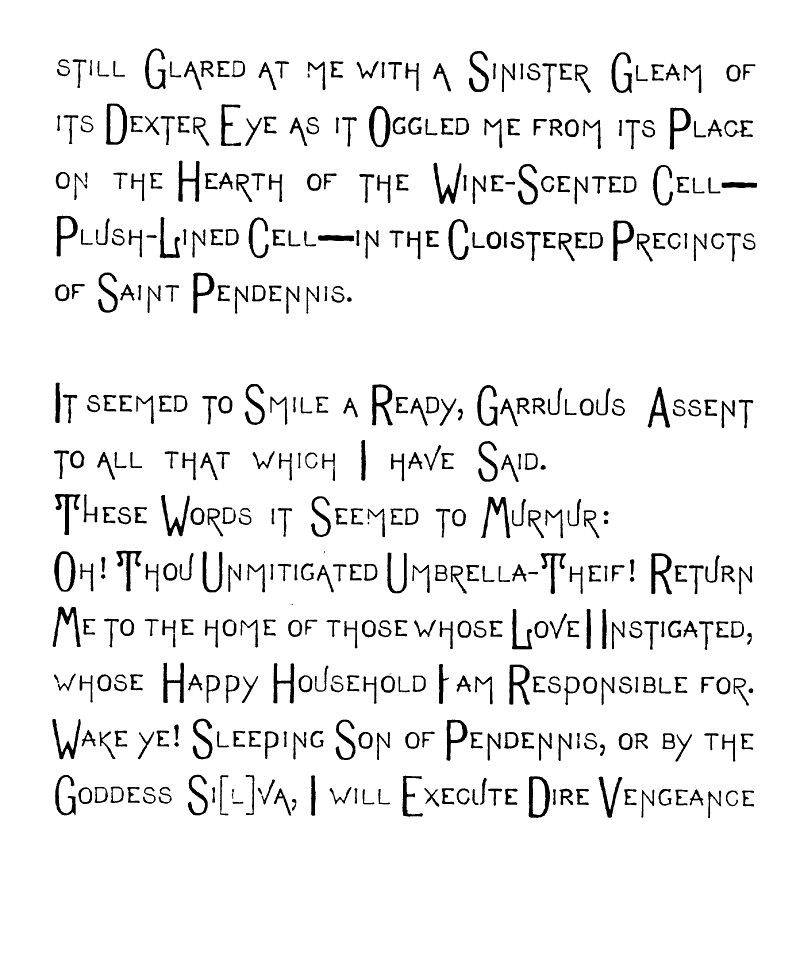 STILL GLARED AT ME WITH A SINISTER GLEAM OF
ITS DEXTER EYE AS IT OGGLED ME FROM ITS PLACE
ON THE HEARTH OF THE WINE-SCENTED CELL—
PLUSH-LINED CELL—IN THE CLOISTERED PRECINCTS
OF SAINT PENDENNIS.
IT SEEMED TO SMILE A READY, GARRULOUS ASSENT
TO ALL THAT WHICH I HAVE SAID.
THESE WORDS IT SEEMED TO MURMUR:
OH! THOU UNMITIGATED UMBRELLA-THEIF! RETURN
ME TO THE HOME OF THOSE WHOSE LOVE I INSTIGATED,
WHOSE HAPPY HOUSEHOLD I AM RESPONSIBLE FOR.
WAKE YE! SLEEPING SON OF PENDENNIS, OR BY THE
GODDESS SI[L]VA, I WILL EXECUTE DIRE VENGEANCE